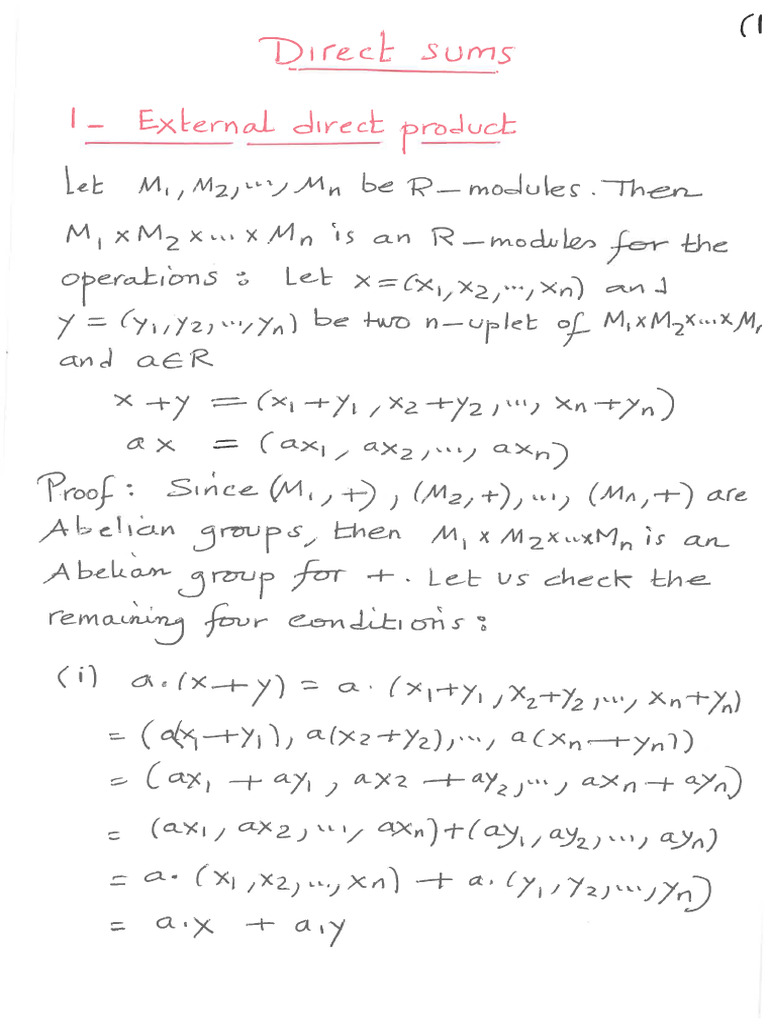 (1
Direct sums
1- External direct product
Let M₁, M₂, ..., Mn be R-modules. Then
M₁ × M₂ × ... × Mn is an R-modules for the
operations : Let x = (x₁, x₂, ..., xn) and
y = (y₁, y₂, ..., yn) be two n-uplet of M₁×M₂×...×Mn
and a∈R
x + y = (x₁ + y₁, x₂ + y₂, ..., xn + yn)
a x = (ax₁, ax₂, ..., axn)
Proof : Since (M₁, +), (M₂, +), ..., (Mn, +) are
Abelian groups, then M₁ × M₂ × ... × Mn is an
Abelian group for +. Let us check the
remaining four conditions :
(i) a.(x + y) = a. (x₁ + y₁, x₂ + y₂, ..., xn + yn)
= (a(x₁ + y₁), a(x₂ + y₂), ..., a(xn + yn))
= (ax₁ + ay₁, ax₂ + ay₂, ..., axn + ayn)
= (ax₁, ax₂, ..., axn) + (ay₁, ay₂, ..., ayn)
= a. (x₁, x₂, ..., xn) + a. (y₁, y₂, ..., yn)
= a.x + a.y